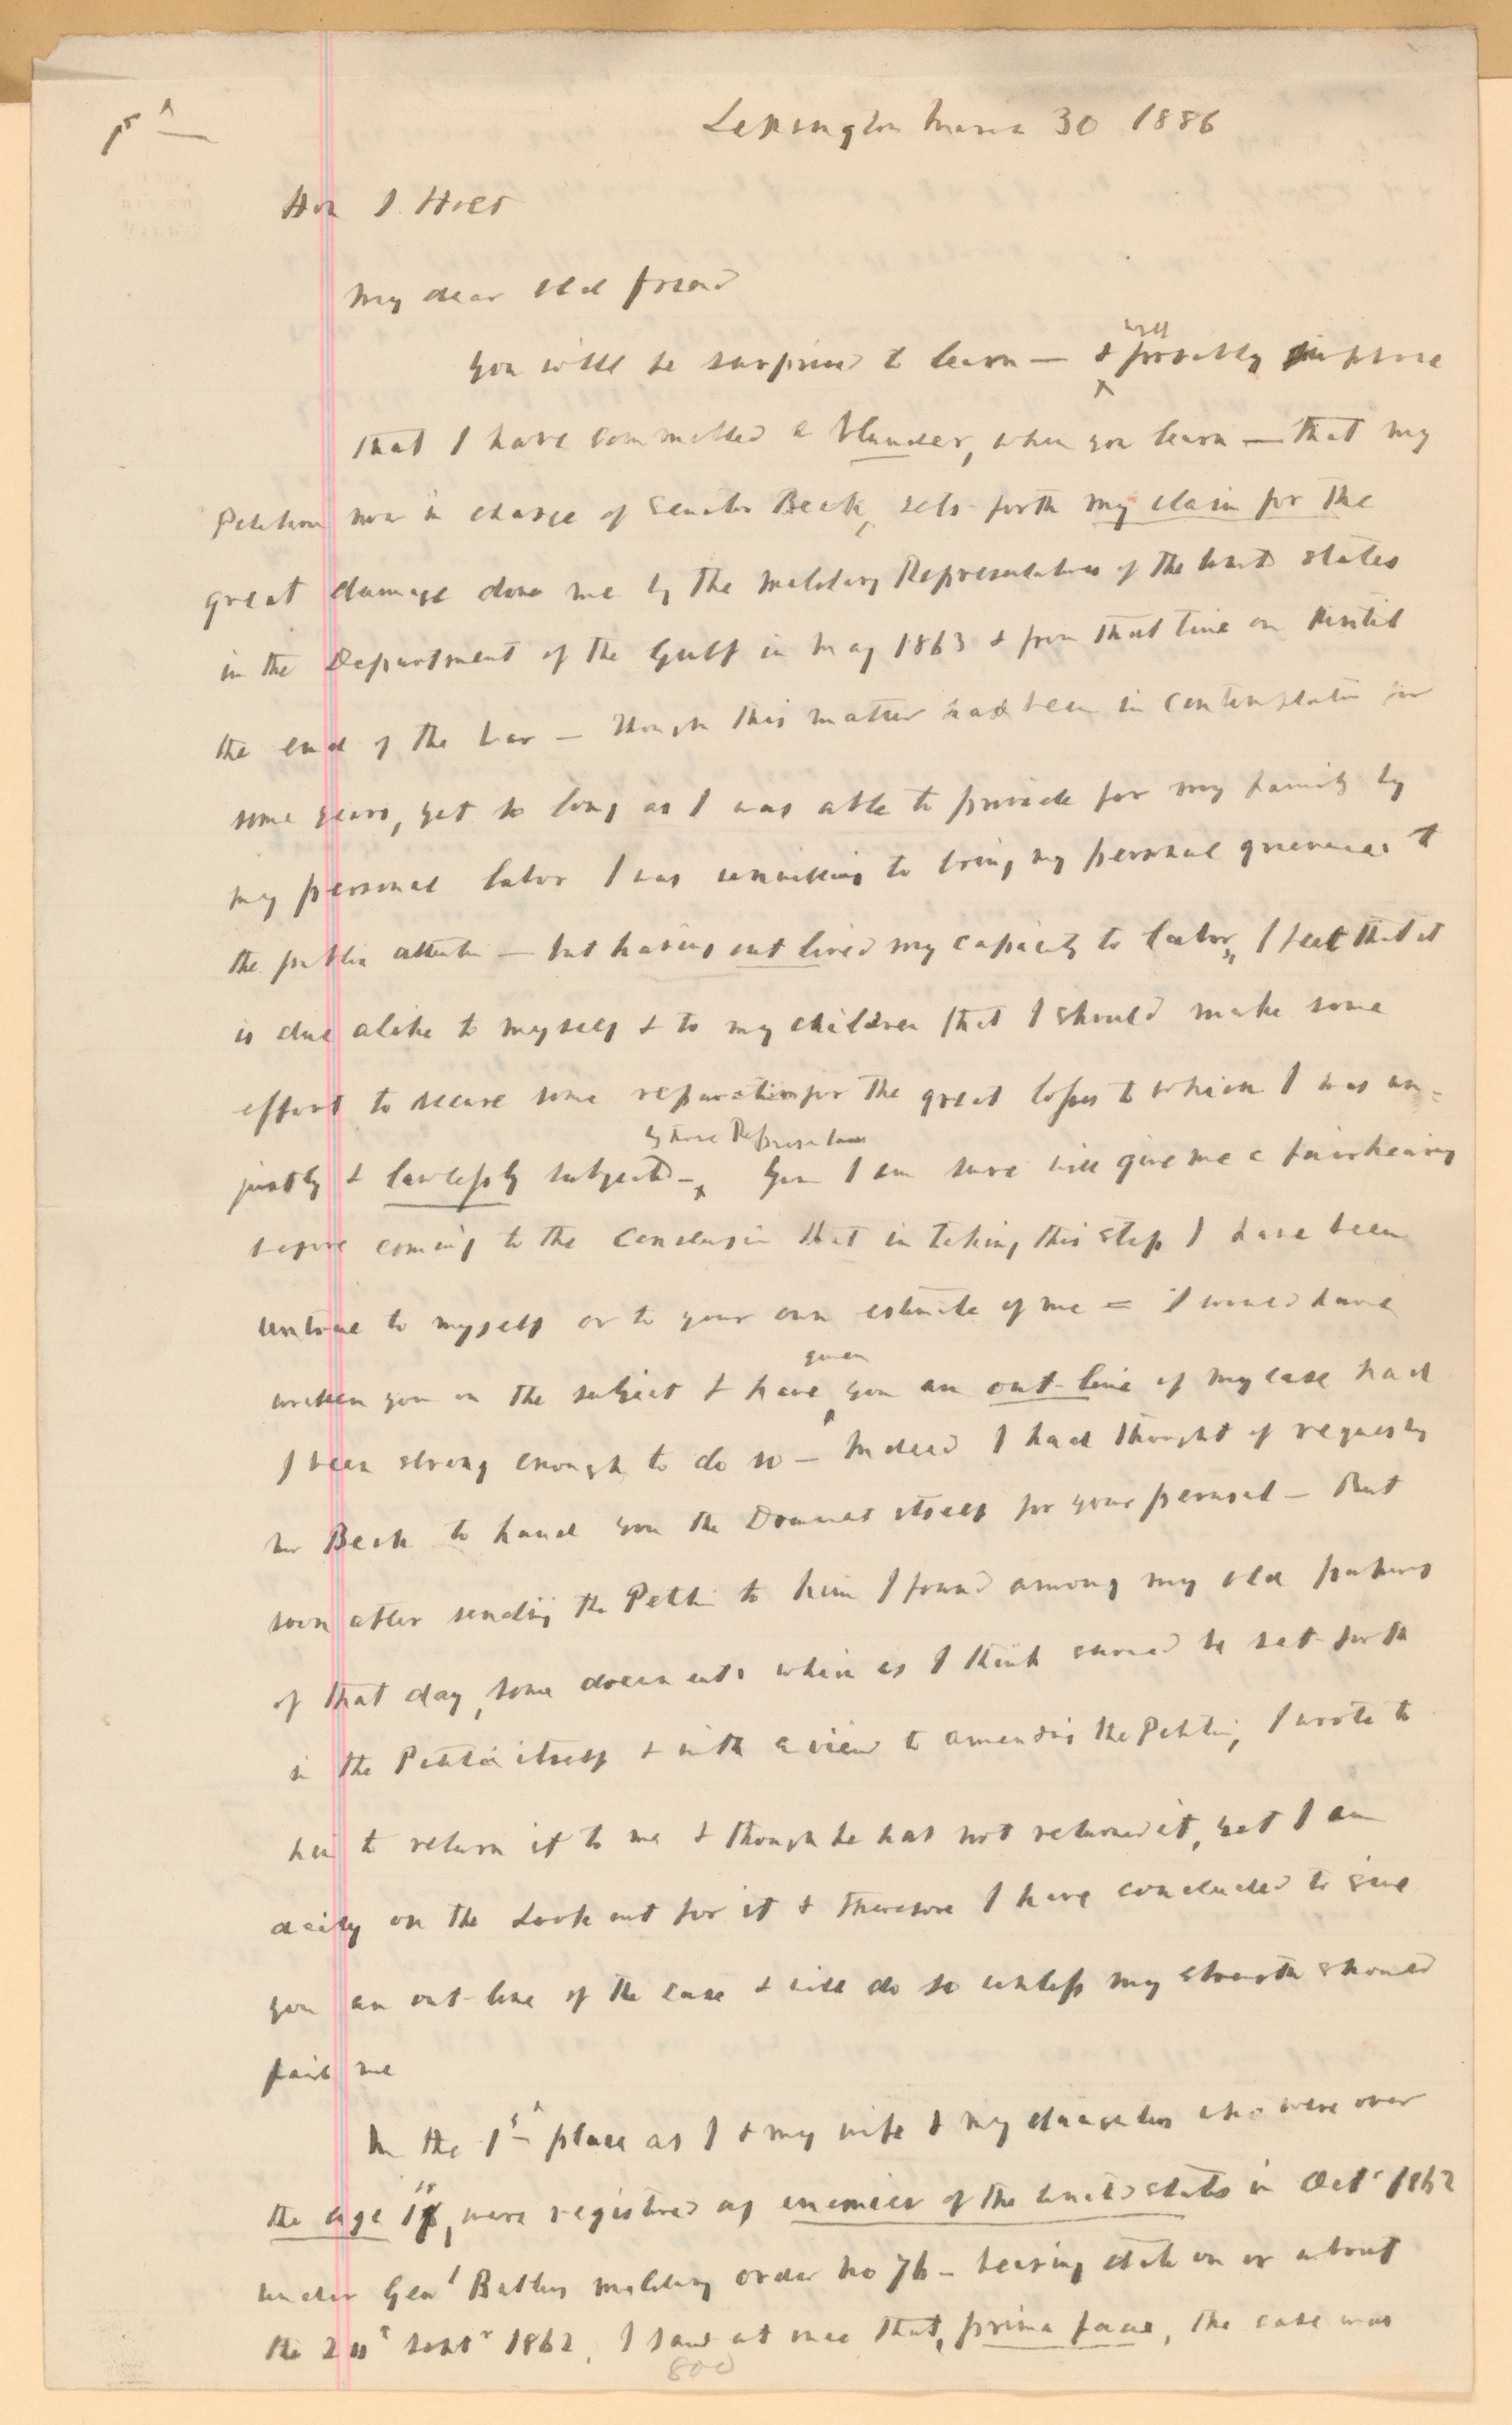 1st
Lexington March 30 1886
Hon J. Holt
My dear old friend
You will be surprised to learn — & will probably suppose
that I have committed a blunder, when you learn — that my
Petition now in charge of Senator Beck, sets forth my claim for the
great damage done me by the military Representatives of the United States
in the Department of the Gulf in May 1863 & from that time on until
the end of the War — Though this matter had been in contemplation for
some years, yet so long as I was able to provide for my family by
my personal labor I was unwilling to bring my personal grievances to
the public attention — but having out lived my capacity to labor, I feel that it
is due alike to myself & to my children that I should make some
effort to secure some reparation for the great losses to which I was un=
justly & lawlessly subjected — by those Representatives You I am sure will give me a fair hearing
before coming to the conclusion that in taking this step I have been
untrue to myself or to your own estimate of me = I would have
written you on the subject & have given you an out-line of my case had
I been strong enough to do so — Indeed I had thought of requesting
Mr Beck to hand you the Document itself for your perusal — But
soon after sending the Petition to him I found among my old papers
of that day, some documents which as I think should be set forth
in the Petition itself & with a view to amending the Petition, I wrote to
him to return it to me & though he has not returned it, yet I am
daily on the look out for it & therefore I have concluded to give
you an out-line of the case & will do so unless my strength should
fail me
In the 1st place as I & my wife & my daughters who were over
the age 18, were registered as enemies of the United States in Octr 1862
under Genl Butlers military order No 76 — bearing date on or about
the 24 Septr 1862, I saw at once that, prima facie, the case was
800